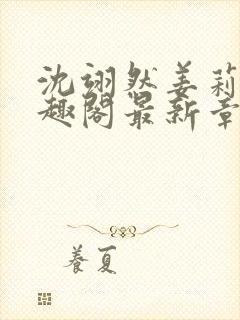 沈翊然姜莉
趣阁最新章
养夏